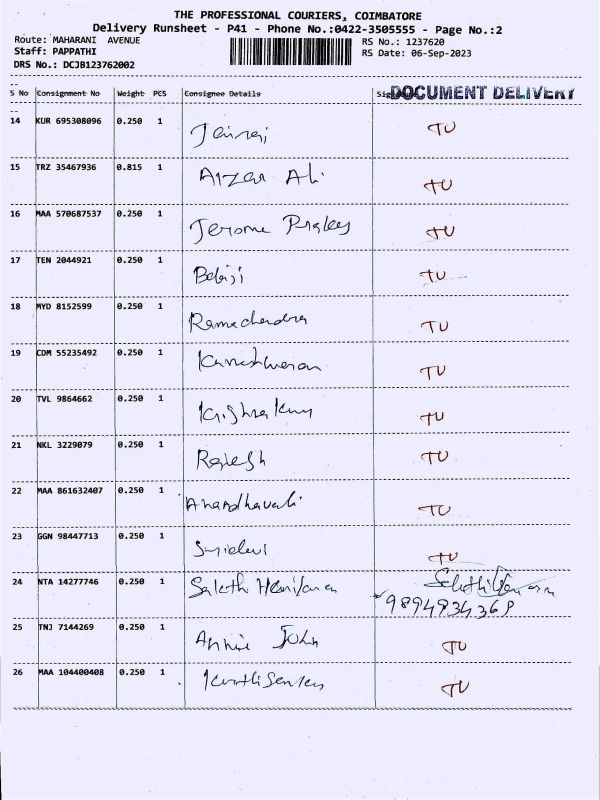 THE PROFESSIONAL COURIERS, COIMBATORE
Delivery Runsheet - P41 - Phone No.:0422-3505555 - Page No.:2
Route: MAHARANI AVENUE
RS No.: 1237620
Staff: PAPPATHI
RS Date: 06-Sep-2023
DRS No.: DCJB123762002
S No Consignment No Weight PCS Consignee Details DOCUMENT DELIVERY
14 KUR 695308096 0.250 1 Jairaj TU
15 TRZ 35467936 0.815 1 Aizar Ali TU
16 MAA 570687537 0.250 1 Jerome TU
17 TEN 2044921 0.250 1 Balaji TU
18 MYD 8152599 0.250 1 Ramachandra TU
19 CDM 55235492 0.250 1 TU
20 TVL 9864662 0.250 1 TU
21 NKL 3229079 0.250 1 Rajesh TU
22 MAA 861632407 0.250 1 Anandhavalli TU
23 GGN 98447713 0.250 1 Sridevi TU
24 NTA 14277746 0.250 1 Sakthi
9894934368
25 TNJ 7144269 0.250 1 Annie John TU
26 MAA 104400408 0.250 1 TU